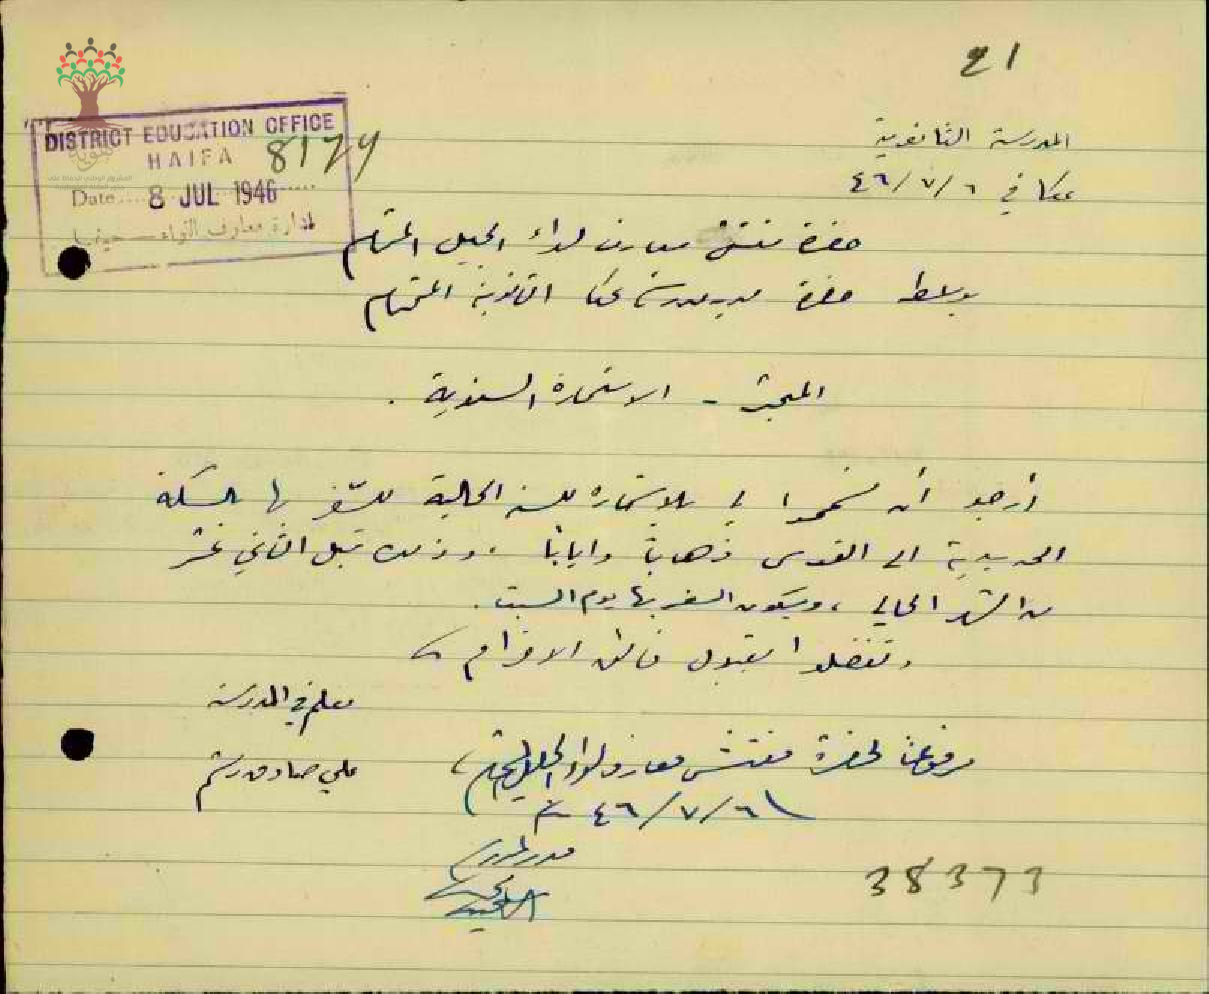 21
DISTRICT EDUCATION OFFICE
HAIFA
8179
Date.... 8 JUL 1946
إدارة معارف اللواء - حيفا
المدرسة الثانوية
عكا في ٦/٧/٤٦
حضرة مفتش معارف لواء الجليل المحترم
بواسطة حضرة مدير مدرسة عكا الثانوية المحترم
المبحث - الاستمارة السنوية .
أرجو أن تسمحوا لي بالاستمارة للسنة الحالية للسفر بها بالسكة
الحديدية الى القدس ذهاباً وإياباً . وذلك قبل الثاني عشر
من الشهر الحالي ، وسيكون السفر بها يوم السبت .
وتفضلوا بقبول فائق الاحترام
معلم في المدرسة
علي صادق رستم
مرفوعة لحضرة مفتش معارف لواء الجليل المحترم
٦/٧/٤٦
مدير المدرسة
38373